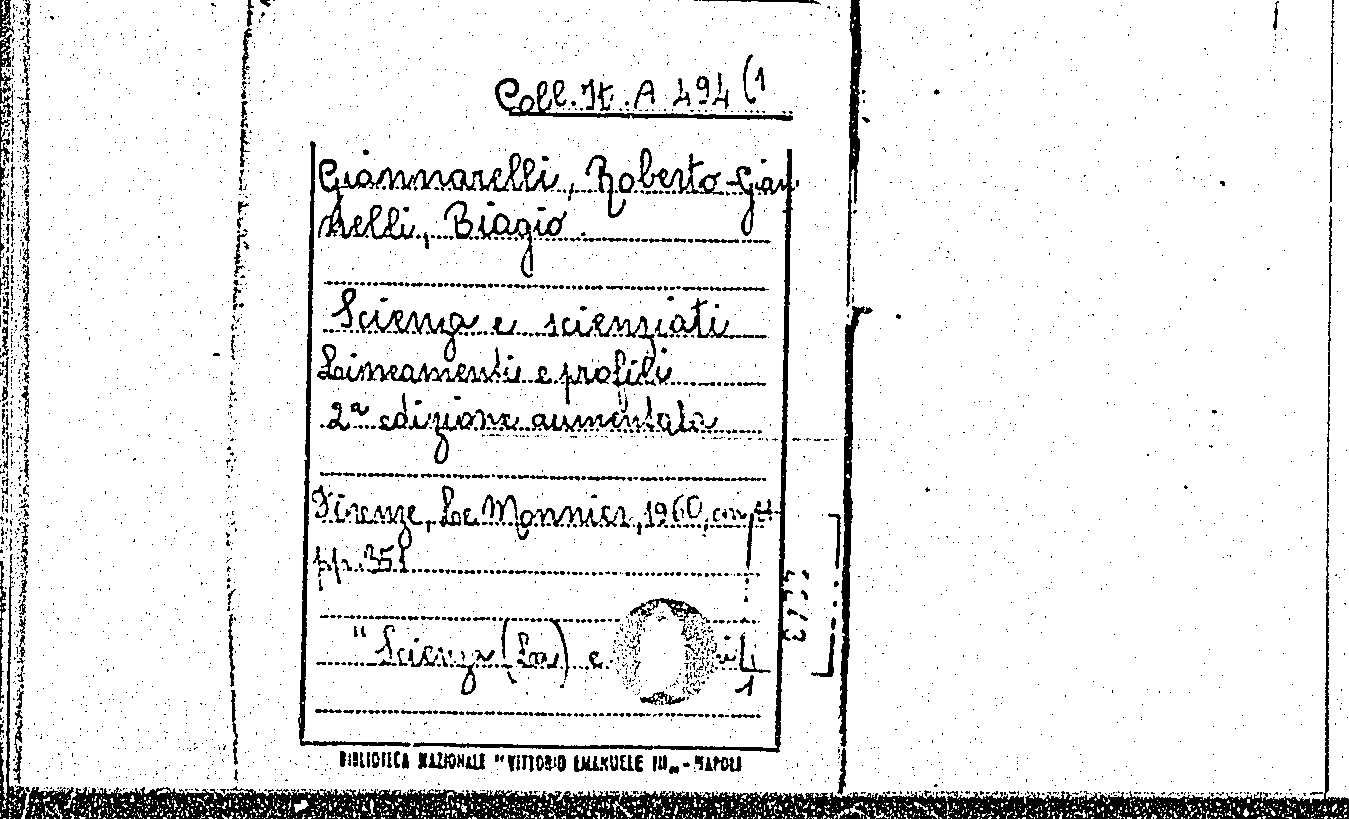 Coll. It. A 494 (1
Giannarelli, Roberto - Gian
nelli, Biagio.
Scienza e scienziati
Lineamenti e profili
2ª edizione aumentata
Firenze, Le Monnier, 1960, cm
pp. 351
"Scienza (La) e
1
BIBLIOTECA NAZIONALE "VITTORIO EMANUELE III„ - NAPOLI